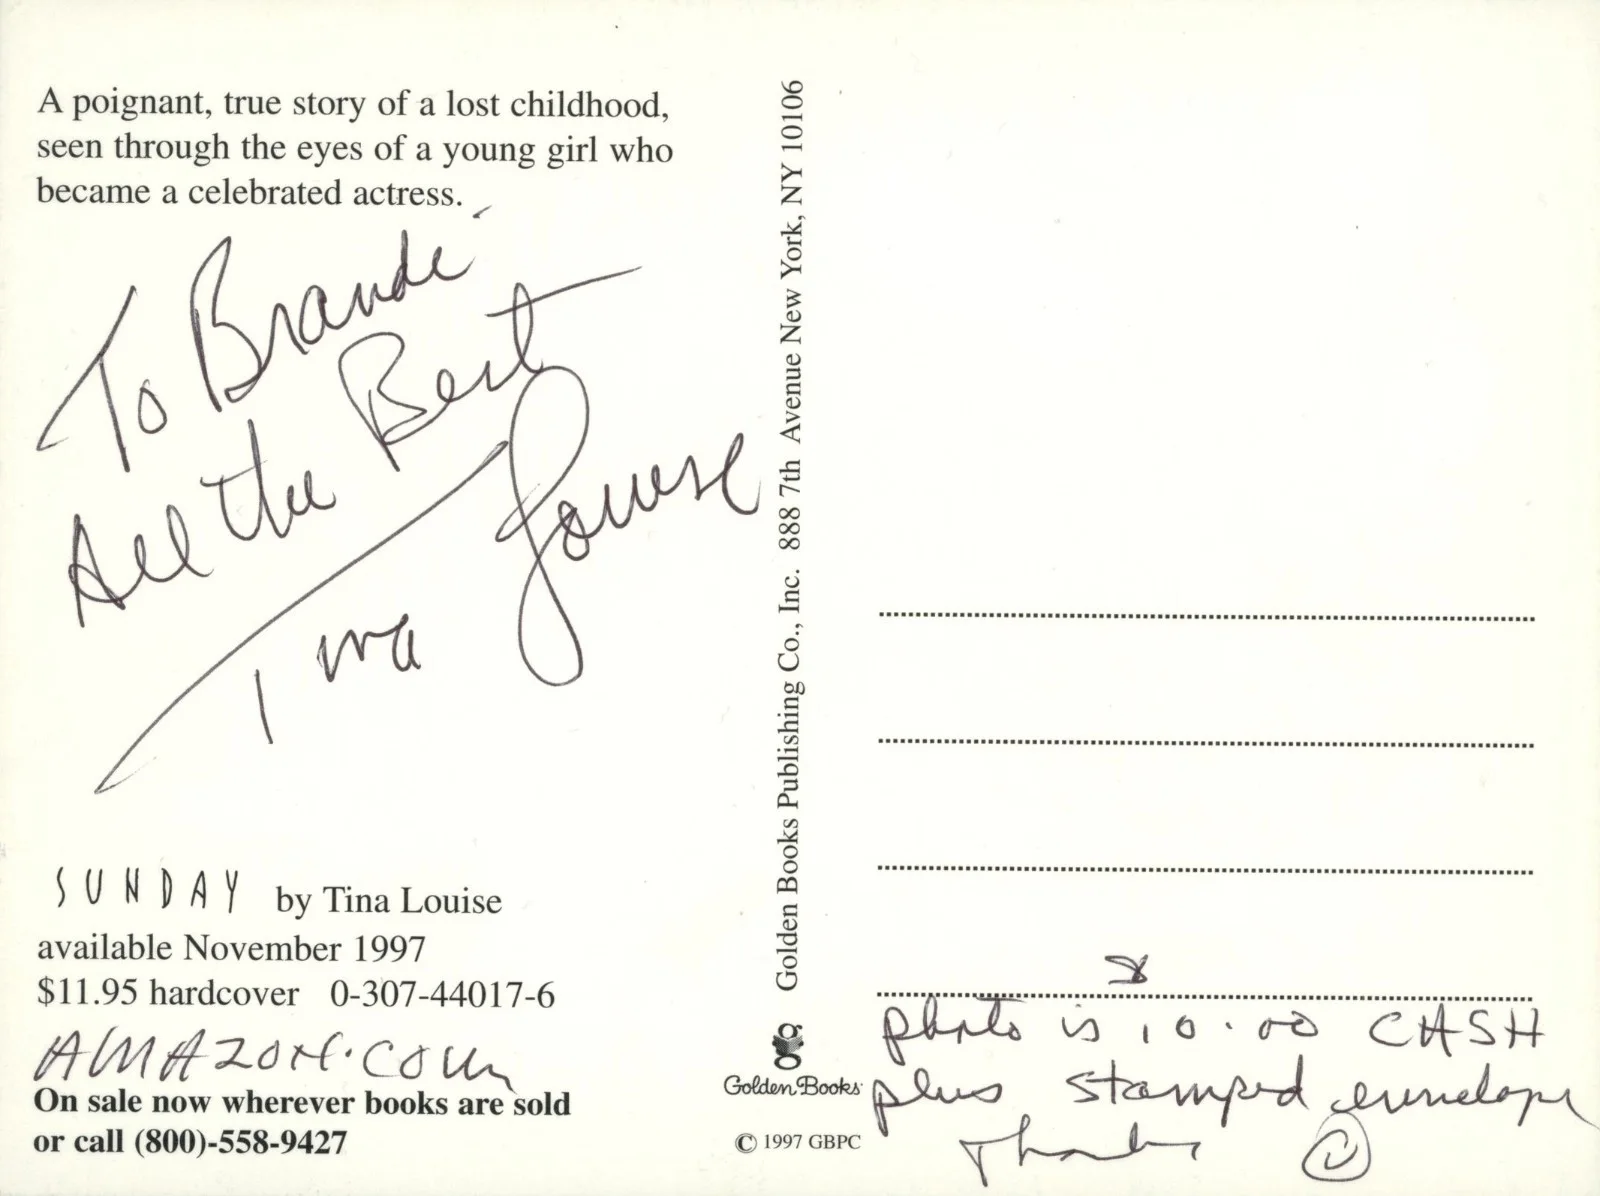 A poignant, true story of a lost childhood,
seen through the eyes of a young girl who
became a celebrated actress.
To Brandi
All the Best
Tina Louise
SUNDAY by Tina Louise
available November 1997
$11.95 hardcover 0-307-44017-6
AMAZON.COM
On sale now wherever books are sold
or call (800)-558-9427
Golden Books Publishing Co., Inc. 888 7th Avenue New York, NY 10106
Golden Books
© 1997 GBPC
photo is 10.00 CASH
plus stamped envelope
Thanks